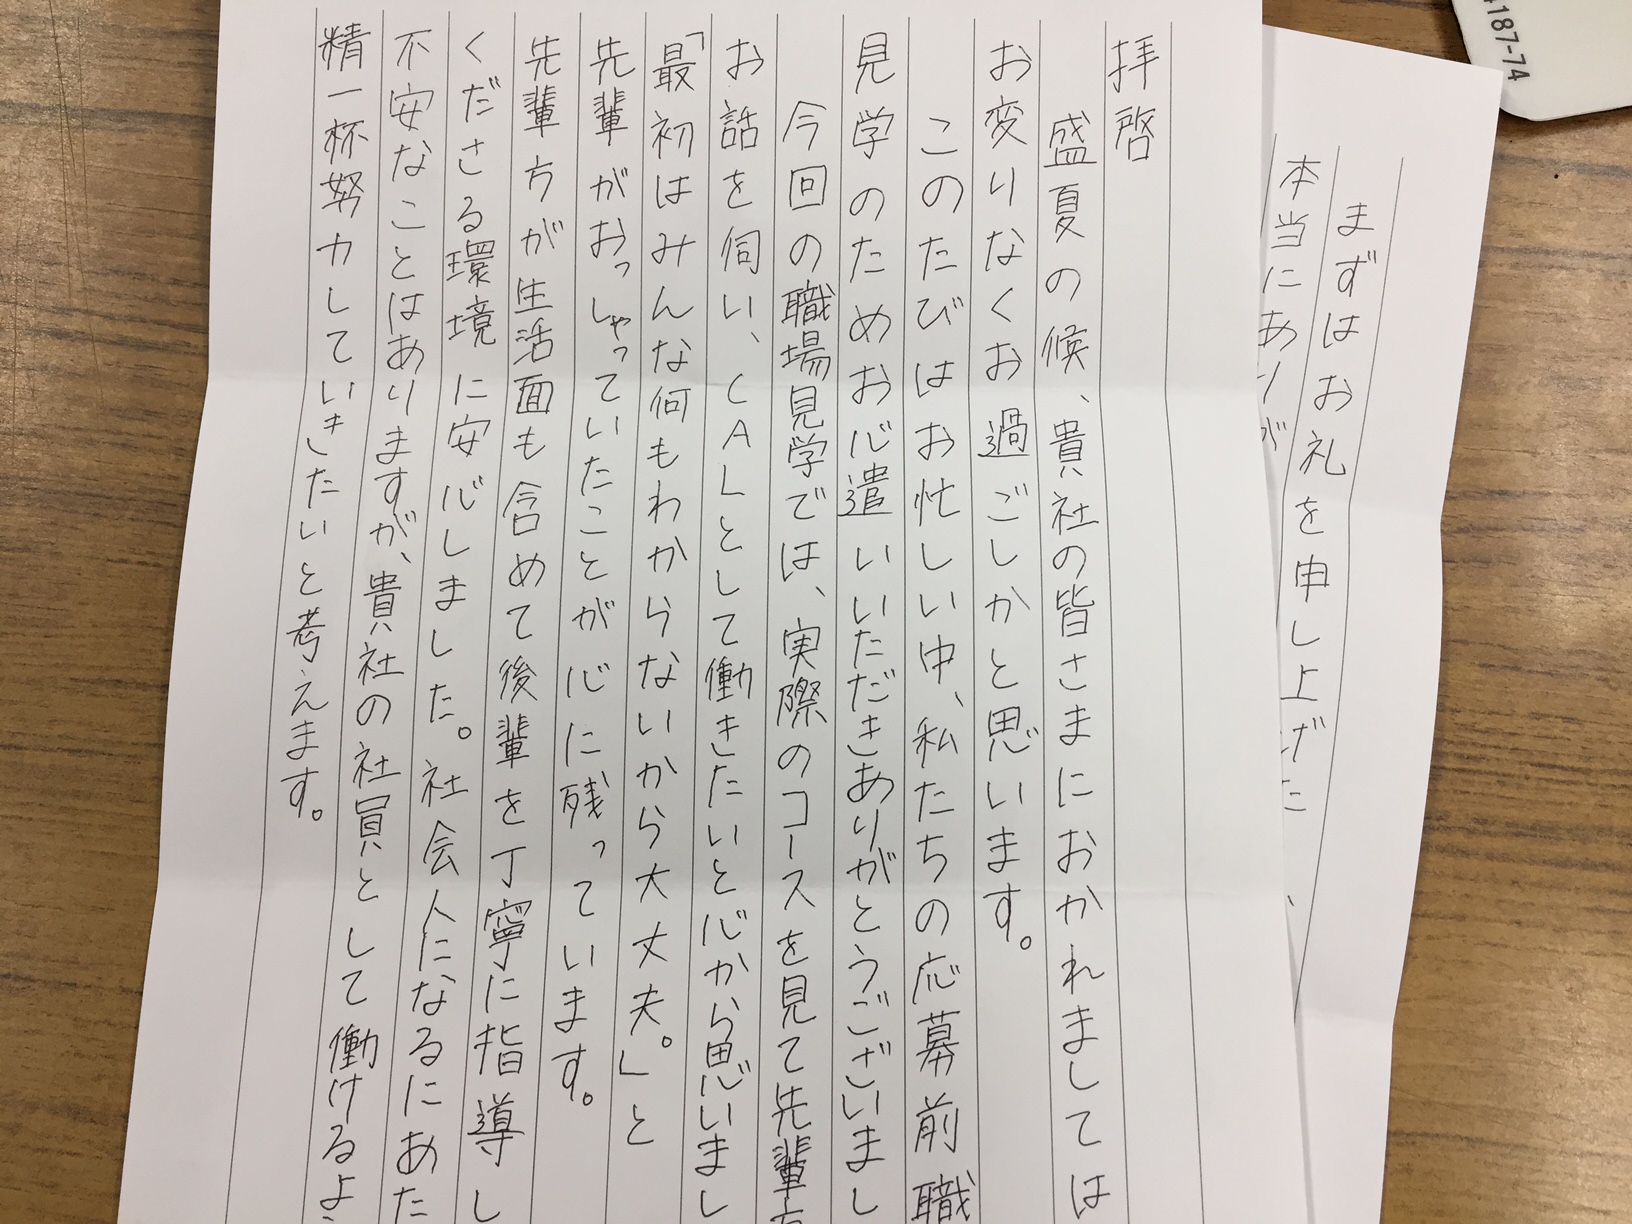 拝啓
盛夏の候、貴社の皆さまにおかれましては
お変りなくお過ごしかと思います。
このたびはお忙しい中、私たちの応募前職
見学のためお心遣いいただきありがとうございまし
今回の職場見学では、実際のコースを見て先輩方
お話を伺い、CALとして働きたいと心から思いまし
「最初はみんな何もわからないから大丈夫。」と
先輩がおっしゃっていたことが心に残っています。
先輩方が生活面も含めて後輩を丁寧に指導し
くださる環境に安心しました。社会人になるにあた
不安なことはありますが、貴社の社員として働けるよ
精一杯努力していきたいと考えます。
本当にありが
まずはお礼を申し上げた
4187-74